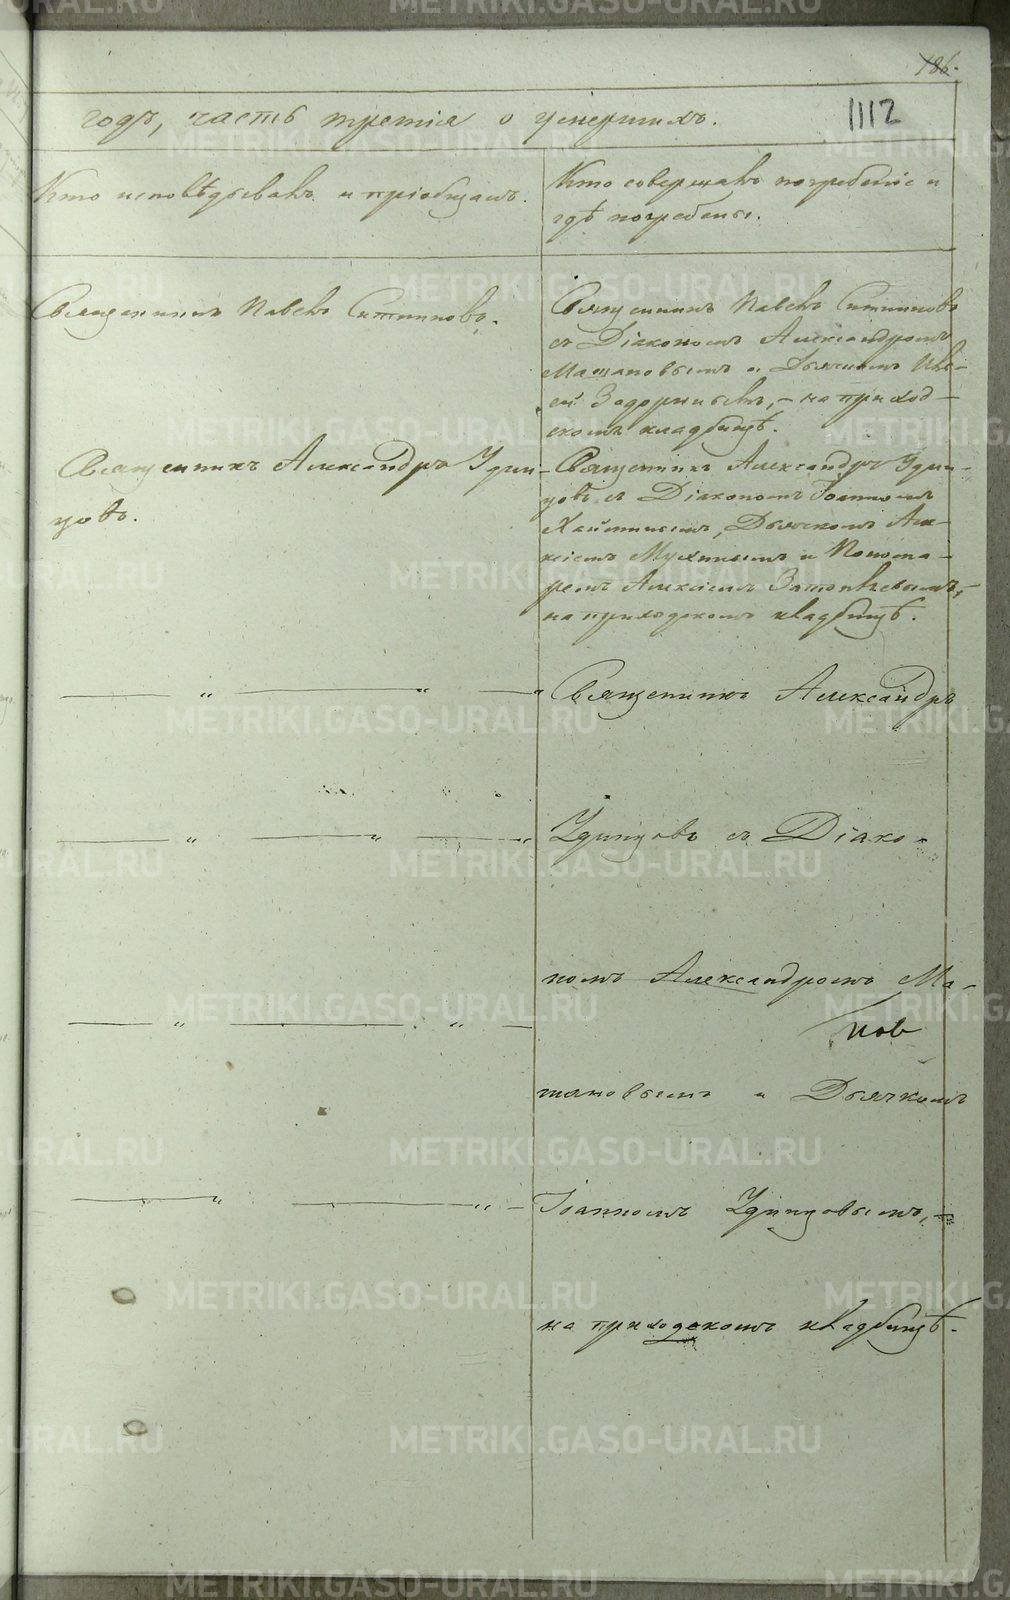 186.
1112
годъ, часть третія о умершихъ.
Кто исповѣдывалъ и пріобщалъ.
Кто совершалъ погребеніе и
гдѣ погребены.
Священникъ Павелъ
Священникъ Павелъ
съ Діакономъ Александромъ
и Дьячкомъ
на приход-
скомъ кладбищѣ.
Священникъ Александръ Удин-
цовъ.
Священникъ Александръ Удин-
цовъ съ Діакономъ Іоанномъ
Дьячкомъ Але-
ксіемъ Мухинымъ и Понома-
ремъ Алексіемъ
на приходскомъ кладбищѣ.
Священникъ Александръ
Удинцовъ съ Діако-
номъ Александромъ Ма-
нов
и Дьячкомъ
Іоанномъ Удинцовымъ,
на приходскомъ кладбищѣ.
METRIKI.GASO-URAL.RU